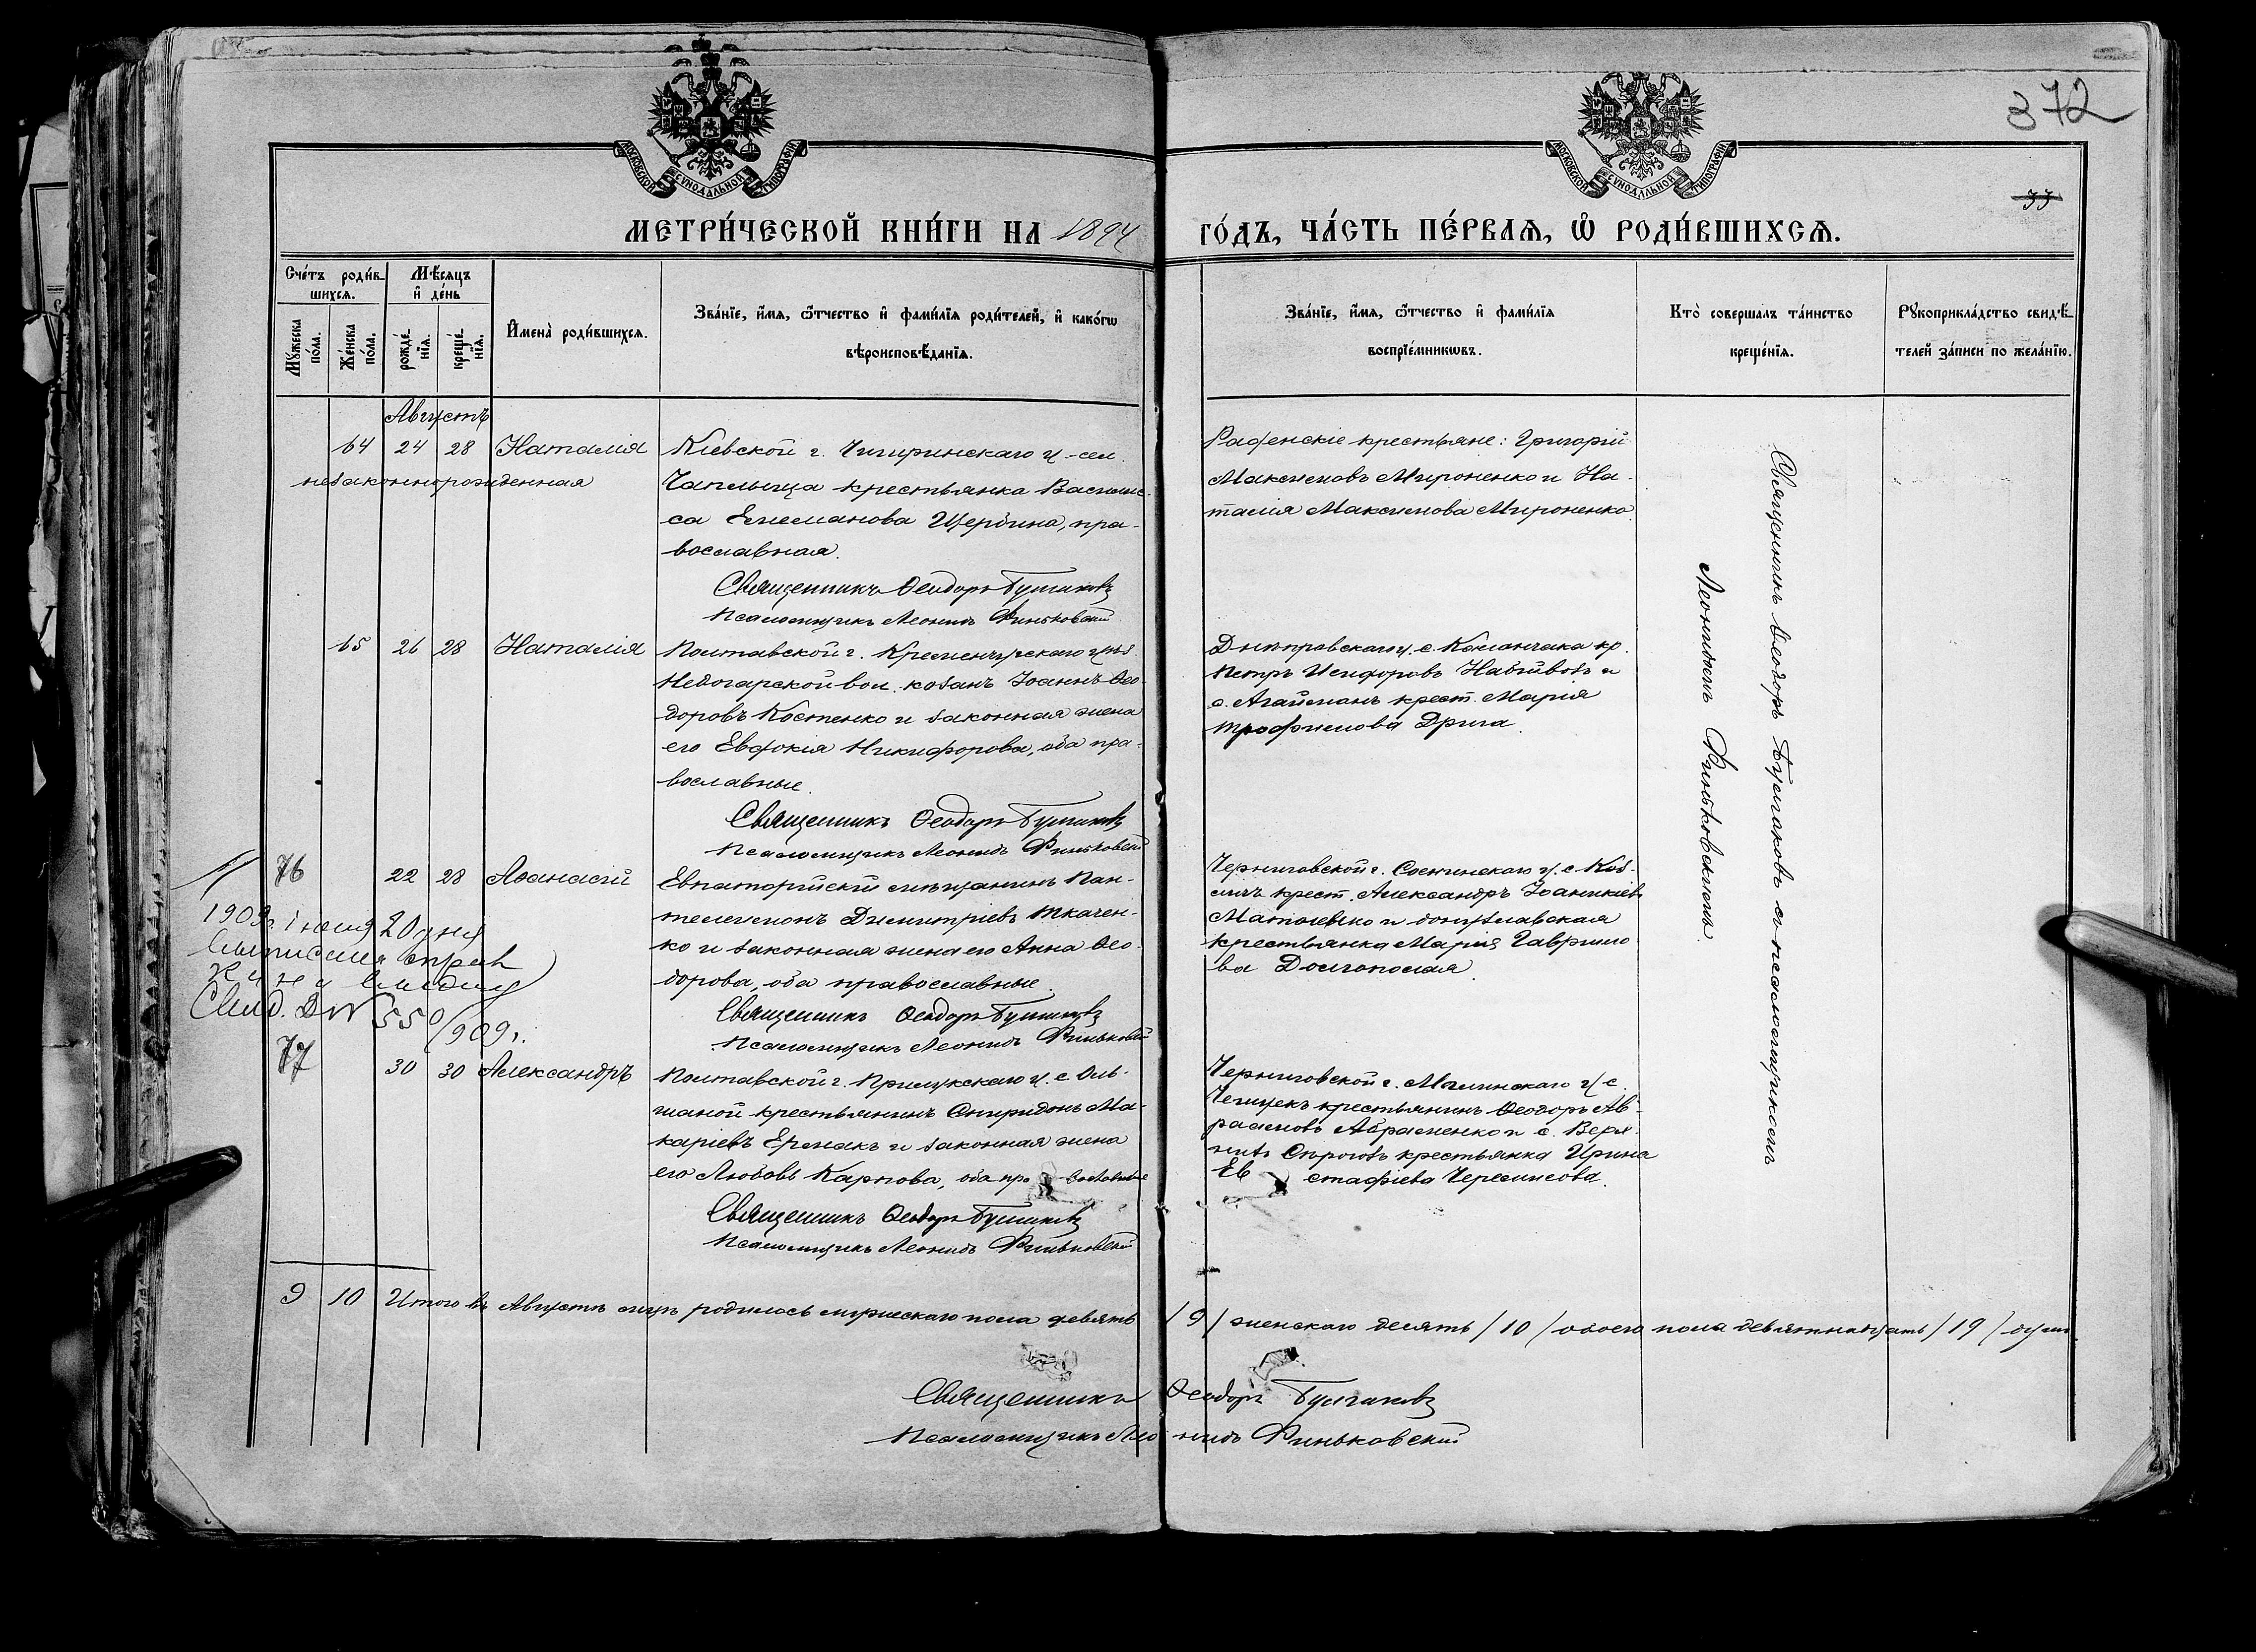 372
33
МОСКОВСКОЙ СУНОДАЛЬНОЙ ТИПОГРАФІИ
МОСКОВСКОЙ СУНОДАЛЬНОЙ ТИПОГРАФІИ
МЕТРИ́ЧЕСКОЙ КНИ́ГИ НА 1894 ГО́ДЪ, ЧА́СТЬ ПЕ́РВАЯ, Ѡ҆ РОДИ́ВШИХСЯ.
Сче́тъ роди́в-
шихся.
Мꙋ́жеска по́ла.
Же́нска по́ла.
Мѣ́сяцъ
и҆ де́нь
рожде́нїя.
креще́нїя.
И҆мена̀ роди́вшихся.
Зва́нїе, и҆́мя, ѻ҆́тчество и҆ фами́лїя роди́телей, и҆ како́гѡ
вѣроисповѣ́данїя.
Зва́нїе, и҆́мя, ѻ҆́тчество и҆ фами́лїя
воспрїе́мникѡвъ.
Кто̀ соверша́лъ та́инство
креще́нїя.
Рꙋкоприкла́дство свидѣ́-
телей за́писи по жела́нїю.
Августъ
64 24 28 Наталія
незаконнорожденная
Кіевской г. Чигиринскаго у. сел.
Чаплища крестьянка Васили-
са Емельянова Щербина, пра-
вославная.
Священникъ Ѳеодоръ Булгаковъ
Псаломщикъ Леонидъ Финьковскій
крестьяне: Григорій
Максимовъ Мироненко и На-
талія Максимова Мироненко.
65 26 28 Наталія
Полтавской г. Кременчугскаго уѣз.
Недогарской вол. козакъ Іоаннъ Ѳео-
доровъ Костенко и законная жена
его Евдокія Никифорова, оба пра-
вославные.
Священникъ Ѳеодоръ Булгаковъ
Псаломщикъ Леонидъ Финьковскій
Днѣпровскаго у. с. Каланчака кр.
Петръ Исидоровъ и
с. Агайманъ крест. Марія
Трофимова Дрига.
76 22 28 Аѳанасій
Евпаторійскій мѣщанинъ Пан-
телеимонъ Димитріевъ Ткачен-
ко и законная жена его Анна Ѳео-
дорова, оба православные.
Священникъ Ѳеодоръ Булгаковъ
Псаломщикъ Леонидъ Финьковскій
Черниговской г. Сосницкаго у. с.
крест. Александръ Іоанникіевъ
и
крестьянка Марія Гаврило-
ва Долгополая.
1909 г. іюня 20 дня
Свид. № 550/909 г.
77 30 30 Александръ
Полтавской г. Прилукскаго у. с. Оль-
шаной крестьянинъ Спиридонъ Ма-
каріевъ Ермакъ и законная жена
его Любовь Карпова, оба православные
Священникъ Ѳеодоръ Булгаковъ
Псаломщикъ Леонидъ Финьковскій
Черниговской г. Мглинскаго у. с.
крестьянинъ Ѳеодоръ Ав-
раамовъ Абраменко и с. Верх-
нихъ Сѣрогозъ крестьянка Ирина
Евстафіева Черемисова.
Священникъ Ѳеодоръ Булгаковъ съ псаломщикомъ
Леонидомъ Финьковскимъ.
9 10 Итого въ Августѣ мцѣ родилось мужескаго пола девять /9/ женскаго десять /10/ обоего пола девятнадцать /19/ душъ.
Священникъ Ѳеодоръ Булгаковъ
Псаломщикъ Леонидъ Финьковскій